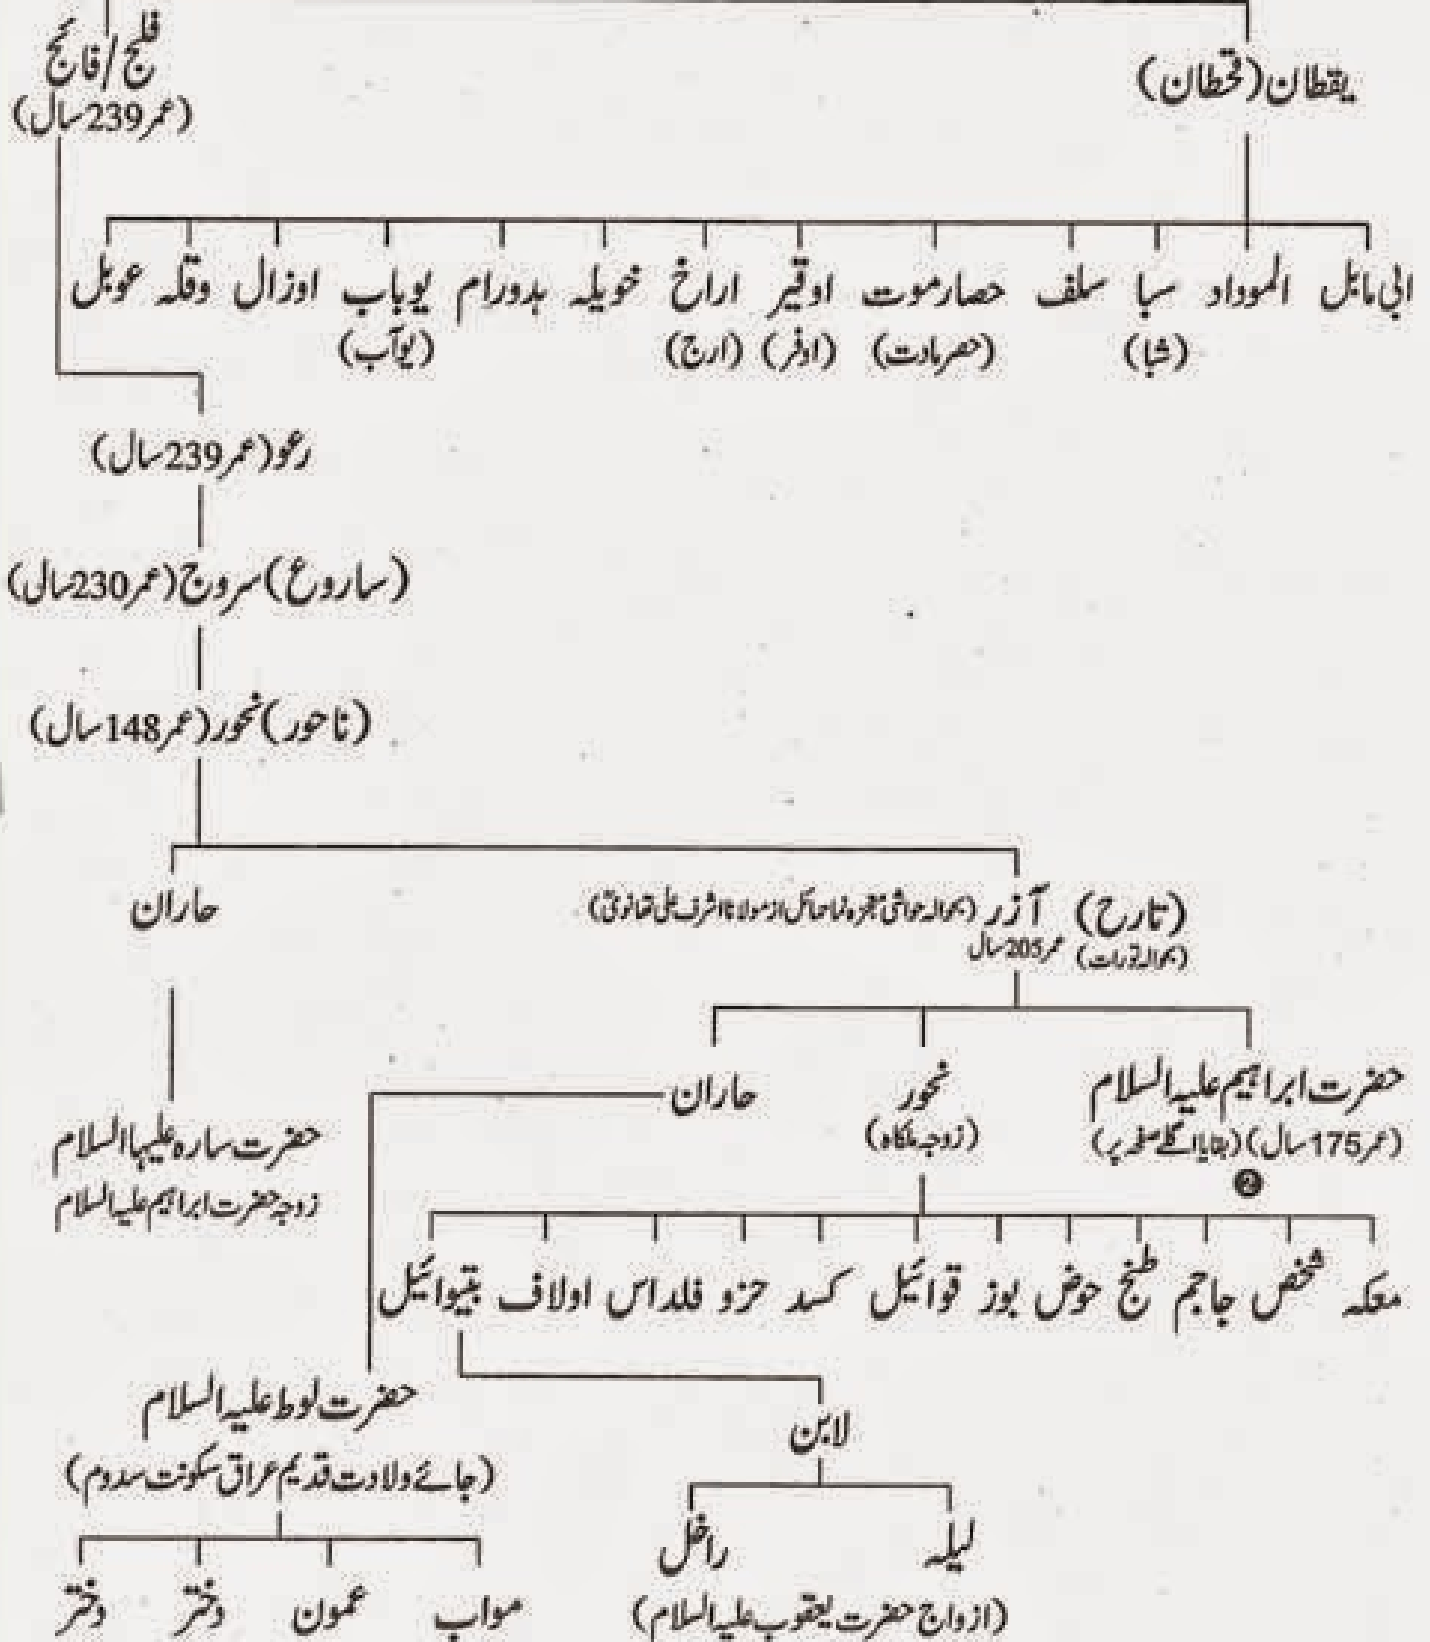 یقطان (قحطان)
فلج/فائج
(عمر 239 سال)
ابی مایل المووداد سبا سلف حصارموت اوقیر اراخ خویلہ بدورام یوباب اوزال وقلہ عوبل
(شبا) (حصرمادت) (اوفر) (ارج) (یوآب)
رعو (عمر 239 سال)
(ساروع) سروج (عمر 230 سالی)
(ناحور) نحور (عمر 148 سال)
(تارح) آزر (بحوالہ حواشی شجرہ نما حمائل از مولانا اشرف علی تھانویؒ)
(بحوالہ تورات) عمر 205 سال
حاران
حضرت ابراہیم علیہ السلام
(عمر 175 سال) (بقایا اگلے صفحہ پر)
2
نحور
(زوجہ ملکاہ)
حاران
حضرت سارہ علیہا السلام
زوجہ حضرت ابراہیم علیہ السلام
معکہ شخص جاجم طنج حوض بوز قوائیل کسد حزو فلداس اولاف بتیوائیل
حضرت لوط علیہ السلام
(جائے ولادت قدیم عراق سکونت سدوم)
لابن
لیلہ راخل
(ازواج حضرت یعقوب علیہ السلام)
مواب عمون دختر دختر